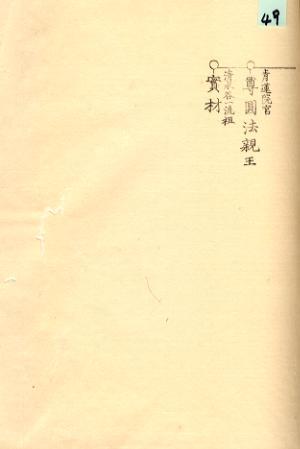 49
青蓮院宮
尊圓法親王
清水谷一流祖
實材